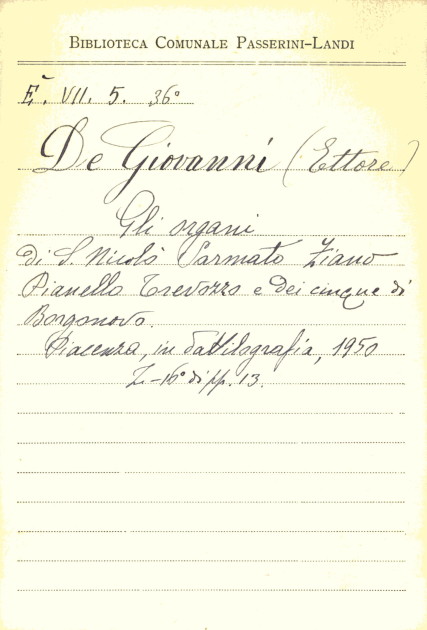 BIBLIOTECA COMUNALE PASSERINI-LANDI
E. VII. 5. 36°
De Giovanni (Ettore)
Gli organi
di S. Nicolò Sarmato Ziano
Pianello Trevozzo e dei cinque di
Borgonovo.
Piacenza, in dattilografia, 1950
in-16° di pp. 13.